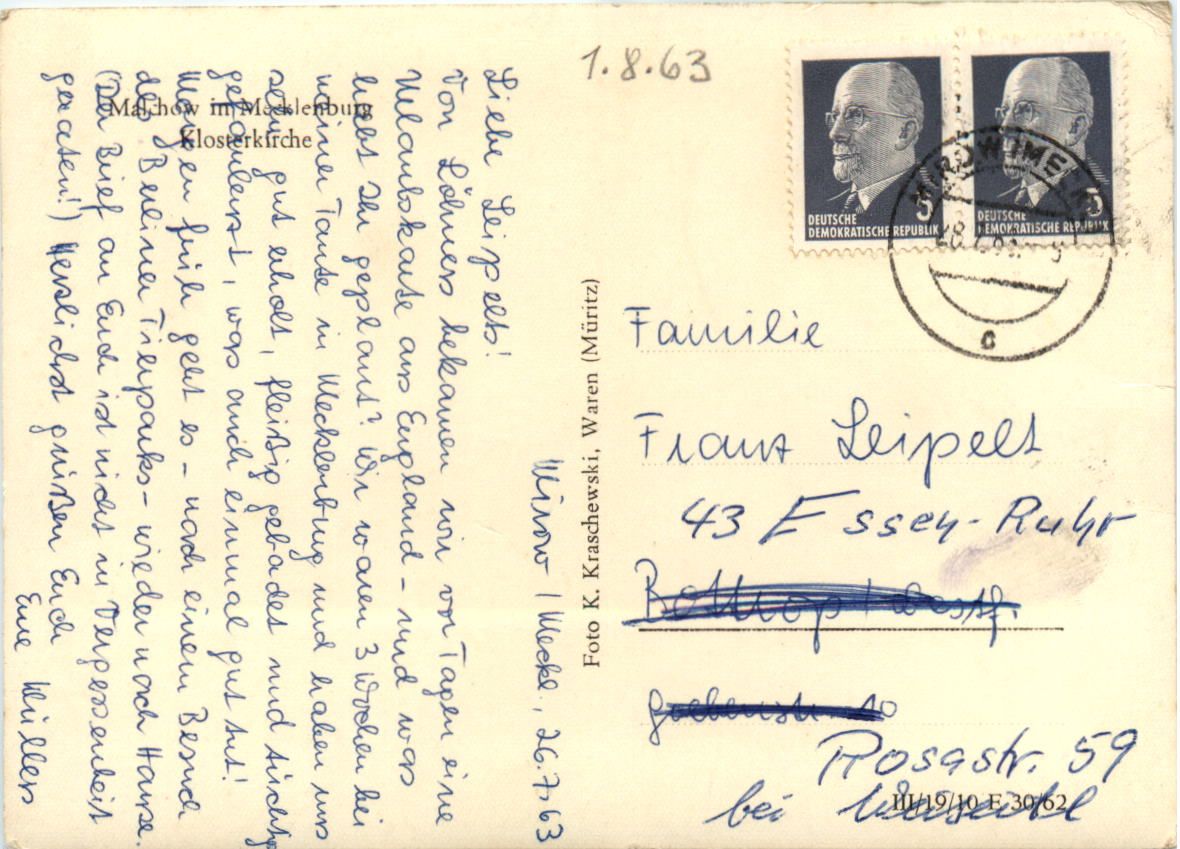 Malchow in Mecklenburg
Klosterkirche
Mirow / Meckl., 26.7.63
Liebe Leipelts!
Von Löhners bekamen wir vor Tagen eine
Urlaubskarte aus England - und was
habt Ihr geplant? Wir waren 3 Wochen bei
meiner Tante in Mecklenburg und haben uns
sehr gut erholt, fleißig gebadet und tüchtig
gefaulenzt, was auch einmal gut tut!
Morgen früh geht es - nach einem Besuch
des Berliner Tierparks - wieder nach Hause.
(Der Brief an Euch ist nicht in Vergessenheit
geraten!) Herzlichst grüßen Euch
Eure Müllers
Foto K. Kraschewski, Waren (Müritz)
1.8.63
DEUTSCHE
DEMOKRATISCHE REPUBLIK
5
DEUTSCHE
DEMOKRATISCHE REPUBLIK
5
MIROW (MECKL
c
Familie
Franz Leipelt
43 Essen-Ruhr
Bottrop / Westf.
Rosastr. 59
bei
III/19/10 E 30/62